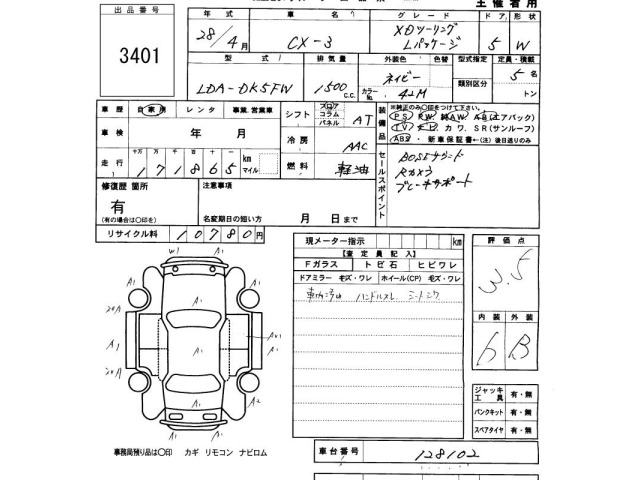 主催者用
出品番号
3401
年式 車名 グレード ドア 形状
28年4月 CX-3 XDツーリング Lパッケージ 5 W
型式 排気量 外装色 色替 型式指定 定員・積載
LDA-DK5FW 1500 c.c. ネイビー 類別区分 5名
カラーNo. 42M トン
車歴 自家用 レンタ 事業.営業車
シフト フロア コラム パネル AT
車検 年 月
冷房 AAC
走行 十万 万 千 百 十 km マイル
171865
燃料 軽油
装備品 ※純正のみ〇印をつけて下さい。
PS PW 純AW AB(エアバック)
TV ナビ カワ. SR(サンルーフ)
ABS ・新車保証書←(注)後日送りのみ
セールスポイント
BOSEサウンド
Rカメラ
ブレーキサポート
修復歴 箇所 注意事項
有
(有の場合は〇印を) 名変期日の短い方 月 日まで
リサイクル料 10780円
現メーター指示 km
【査定員記入】
Fガラス トビ石 ヒビワレ
ドアミラー キズ・ワレ ホイール(CP) キズ・ワレ
ハンドルスレ
評価点
3.5
内装 外装
6 B
W1 A1
A1 A1
A1
A1 A1
A1
A2
A1 A1
ジャッキ工具 有・無
パンクキット 有・無
スペアタイヤ 有・無
車台番号 128102
事務局預り品は〇印 カギ リモコン ナビロム